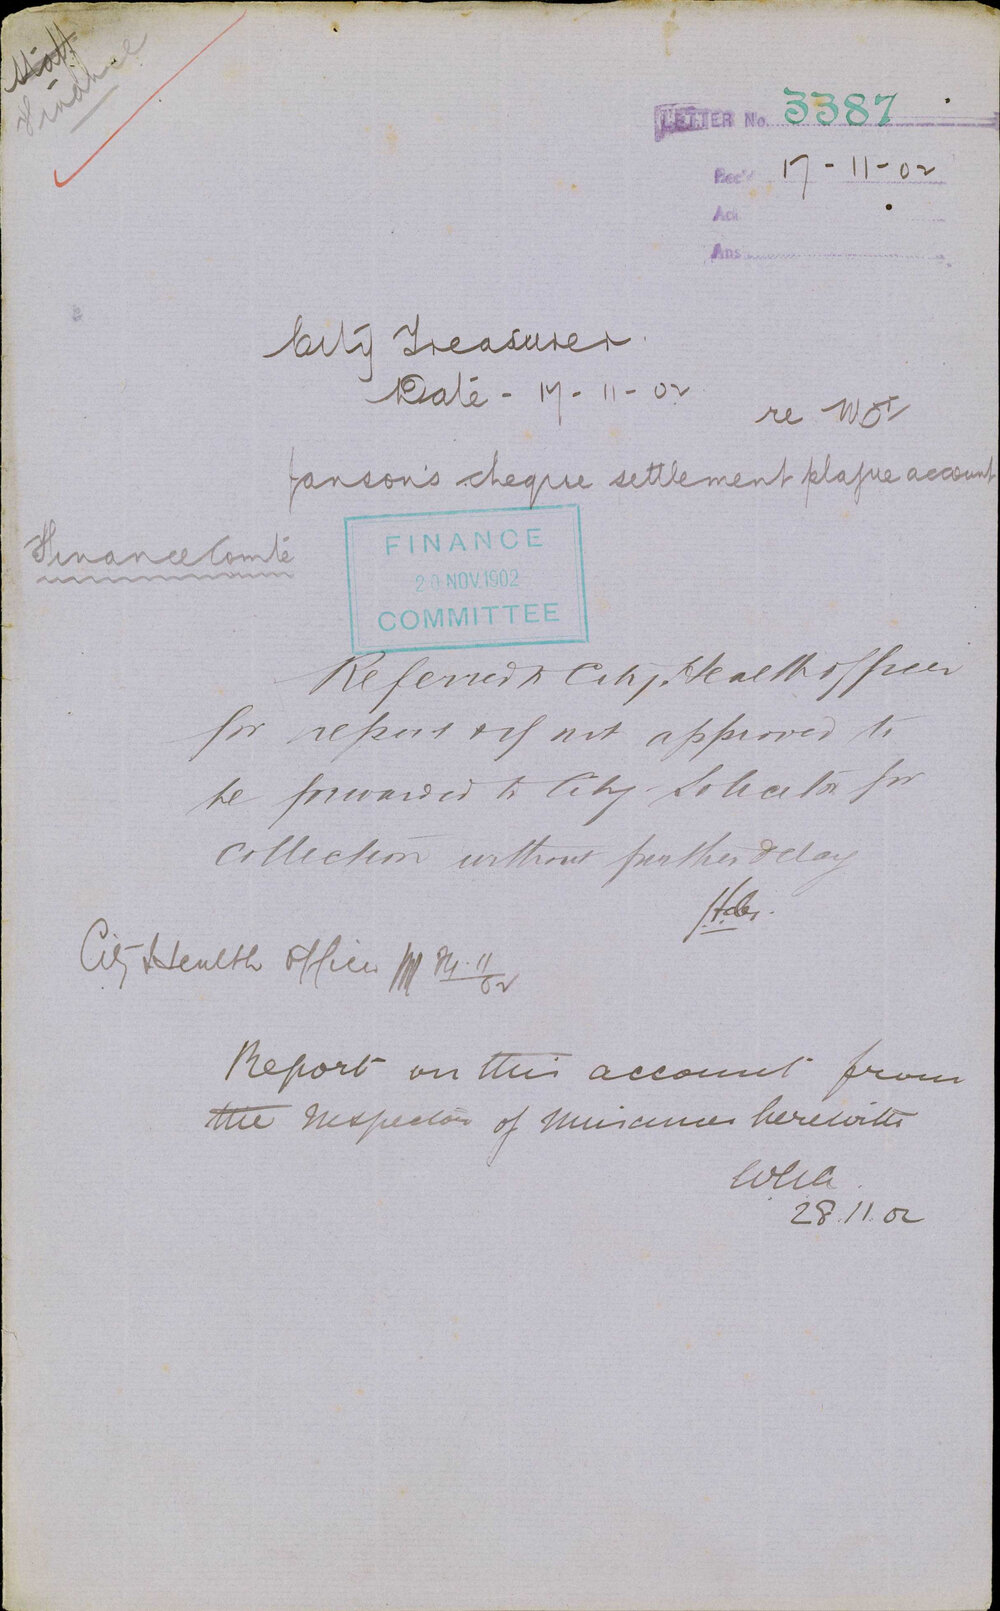 Finance
LETTER No. 3387
Rec'd 17-11-02
Ack
Ans
City Treasurer.
Date - 17-11-02
re Wm
Janson's cheque settlement plague account
Finance Comte
FINANCE
20 NOV. 1902
COMMITTEE
Referred to City Health Officer
for report & if not approved to
be forwarded to City Solicitor for
collection without further delay
City Health Officer 11/02
Report on this account from
the Inspector of Nuisances herewith
28.11.02